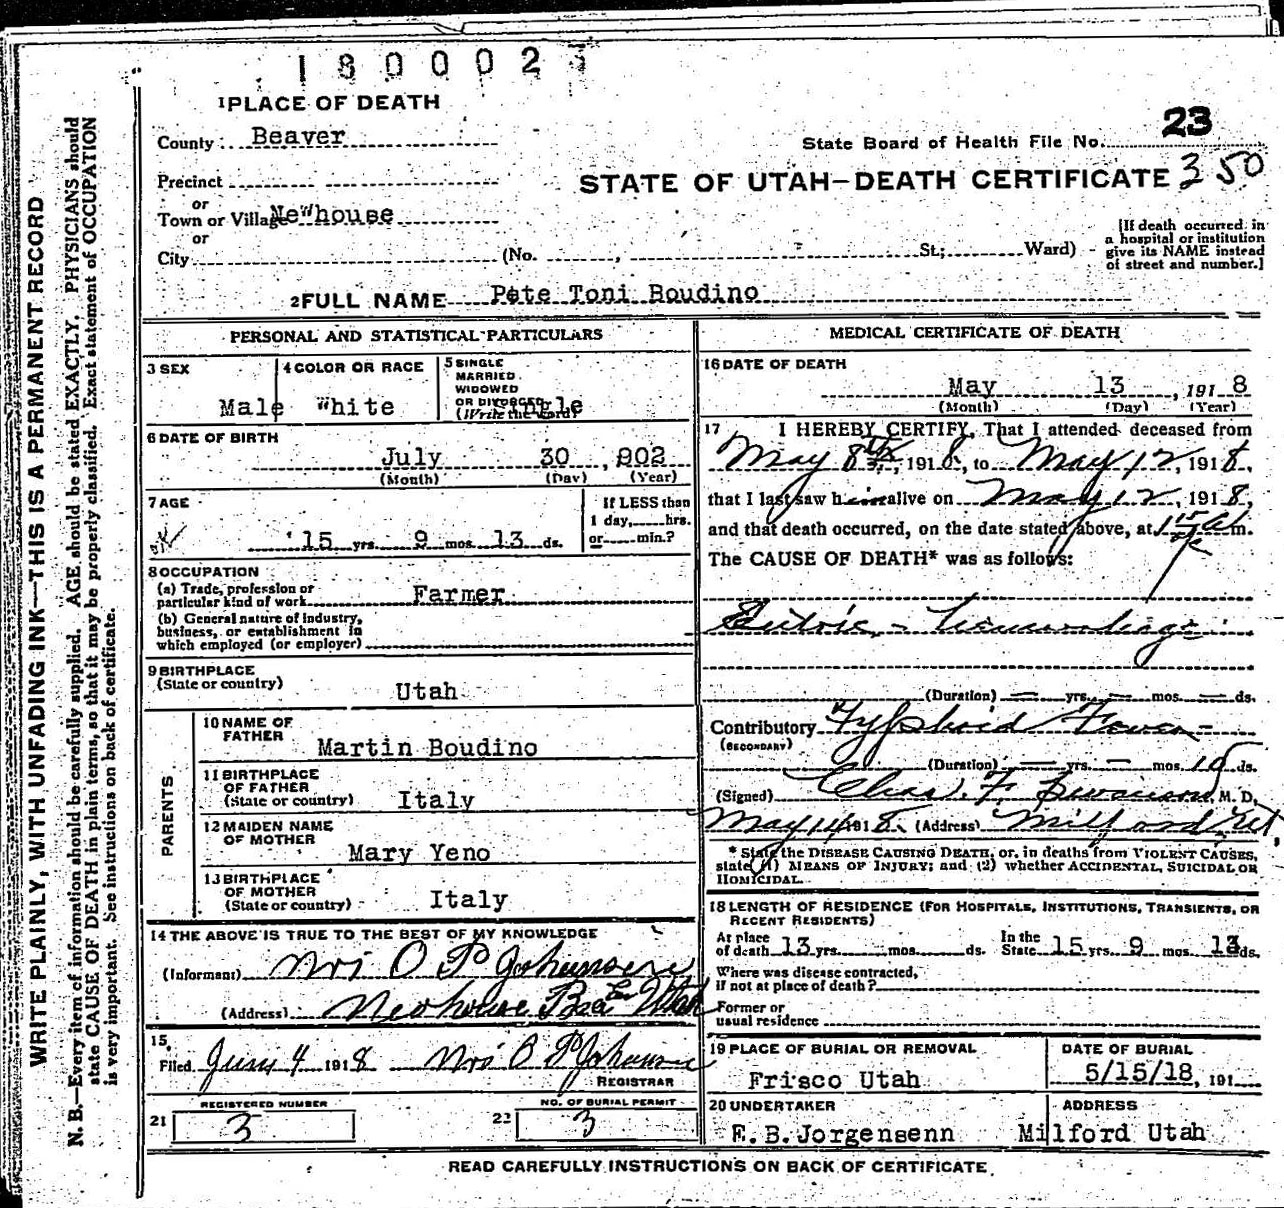 1800023
1 PLACE OF DEATH
County Beaver
23
State Board of Health File No.
Precinct
STATE OF UTAH—DEATH CERTIFICATE 350
or
Town or Village Newhouse
or
City (No. , St; Ward)
[If death occurred in
a hospital or institution
give its NAME instead
of street and number.]
2 FULL NAME Pete Toni Boudino
PERSONAL AND STATISTICAL PARTICULARS
3 SEX
Male
4 COLOR OR RACE
White
5 SINGLE
MARRIED
WIDOWED
OR DIVORCED
(Write the word)
Single
6 DATE OF BIRTH
July 30, 902
(Month) (Day) (Year)
7 AGE
15 yrs. 9 mos. 13 ds.
If LESS than
1 day, hrs.
or min.?
8 OCCUPATION
(a) Trade, profession or
particular kind of work Farmer
(b) General nature of industry,
business, or establishment in
which employed (or employer)
9 BIRTHPLACE
(State or country)
Utah
PARENTS
10 NAME OF
FATHER
Martin Boudino
11 BIRTHPLACE
OF FATHER
(State or country) Italy
12 MAIDEN NAME
OF MOTHER
Mary Yeno
13 BIRTHPLACE
OF MOTHER
(State or country) Italy
14 THE ABOVE IS TRUE TO THE BEST OF MY KNOWLEDGE
(Informant) Mrs O P Johansen
(Address) Newhouse Bea Utah
15
Filed June 4 1918 Mrs O P Johansen
REGISTRAR
REGISTERED NUMBER
21 3
NO. OF BURIAL PERMIT
22 3
MEDICAL CERTIFICATE OF DEATH
16 DATE OF DEATH
May 13, 1918
(Month) (Day) (Year)
17 I HEREBY CERTIFY, That I attended deceased from
May 8th, 1918, to May 12, 1918,
that I last saw him alive on May 12, 1918,
and that death occurred, on the date stated above, at 1 15 A m.
The CAUSE OF DEATH* was as follows:
Enteric - Haemorrhage
(Duration) — yrs. — mos. — ds.
Contributory Typhoid Fever -
(SECONDARY)
(Duration) — yrs. — mos. 10 ds.
(Signed) Chas. F. Swanson, M. D.
May 14 1918 (Address) Milford Ut.
* State the DISEASE CAUSING DEATH, or, in deaths from VIOLENT CAUSES,
state (1) MEANS OF INJURY; and (2) whether ACCIDENTAL, SUICIDAL OR
HOMICIDAL.
18 LENGTH OF RESIDENCE (FOR HOSPITALS, INSTITUTIONS, TRANSIENTS, OR
RECENT RESIDENTS)
At place
of death 13 yrs. mos. ds.
In the
State 15 yrs 9 mos. 13 ds.
Where was disease contracted,
if not at place of death?
Former or
usual residence
19 PLACE OF BURIAL OR REMOVAL
Frisco Utah
DATE OF BURIAL
5/15/18, 191
20 UNDERTAKER
E.B.Jorgensenn
ADDRESS
Milford Utah
READ CAREFULLY INSTRUCTIONS ON BACK OF CERTIFICATE.
WRITE PLAINLY, WITH UNFADING INK—THIS IS A PERMANENT RECORD
N. B.—Every item of information should be carefully supplied. AGE should be stated EXACTLY. PHYSICIANS should
state CAUSE OF DEATH in plain terms, so that it may be properly classified. Exact statement of OCCUPATION
is very important. See instructions on back of certificate.